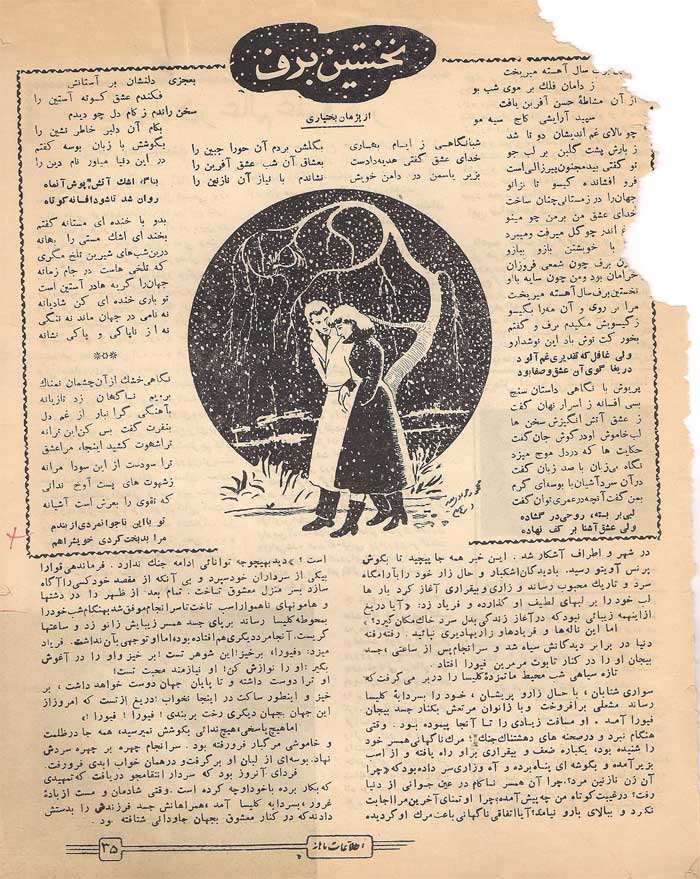 نخستین برف
از پژمان بختیاری
برف سال آهسته میریخت
ز دامان فلك بر موی شب بو
از آن مشاطهٔ حسن آفرین یافت
سپید آرایشی کاج سیه مو
چو بالای غم اندیشان دو تا شد
ز بارش پشت گلبن بر لب جو
تو گفتی بیدمجنون پیر زالی است
فرو افشانده گیسو تا بزانو
جهان را در زمستانی چنان ساخت
خدای عشق من برمن چو مینو
اندر چو گل میرفت و میبرد
با خویشتن بازو ببازو
برف چون شمعی فروزان
خرامان بود ومن چون سایه با او
نخستین برف سال آهسته میریخت
مرا بر روی و آن مه را بگیسو
ز گیسویش مکیدم برف و گفتم
بخور کت نوش باد این نوشدارو
ولی غافل که تقدیری غم آلود
دریغا گوی آن عشق وصفابود
پریوش با نگاهی داستان سنج
بسی افسانه ز اسرار نهان گفت
ز عشق آتش انگیزش سخن ها
لب خاموش اودر گوش جان گفت
حکایت ها که دردل موج میزد
نگاه بی زبان با صد زبان گفت
در آن سردآشیان با بوسه‌ای گرم
بمن گفت آنچه در عمری توان گفت
لبی بر بسته ، روحی در گشاده
ولی عشق آشنا بر کف نهاده
شبانگاهی ز ایام بهاری
بگلشن بردم آن حورا جبین را
خدای عشق گفتی هدیه دادست
بعشاق آن شب عشق آفرین را
بزیر یاسمن در دامن خویش
نشاندم با نیاز آن نازنین را
بعجزی دلنشان بر آستانش
فکندم عشق کوته آستین را
سخن راندم ز کام دل چو دیدم
بکام آن دلبر خاطر نشین را
بگوشش با زبان بوسه گفتم
در این دنیا میاور نام دین را
بناگه اشك آتش پوش آنماه
روان شد تا شود افسانه کوتاه
بدو با خنده ای مستانه گفتم
بخند ای اشك مستی را بهانه
درین شب‌های شیرین تلخ مگری
که تلخی هاست در جام زمانه
جهان را گریه هادر آستین است
تو باری خنده ای کن شادیانه
نه نامی در جهان ماند نه ننگی
نه از ناپاکی و پاکی نشانه
***
نگاهی خشك از آن چشمان نمناك
برویم ناگهان زد تازیانه
بآهنگی گرانبار از غم دل
بنفرت گفت بس کن این ترانه
تراشهوت کشید اینجا، مراعشق
ترا سودست از این سودا مرا نه
زشهوت های پست آوخ ندانی
که تقوی را بعرش است آشیانه
تو با این ناجوانمردی از بندم
مرا بدبخت کردی خویش را هم
در شهر و اطراف آشکار شد . این خبر همه جا پیچید تا بگوش
پرنس آویتو رسید. بادیدگان اشکبار و حال زار خود را بآرامگاه
سرد و تاریك محبوب رساند و زاری و بیقراری آغاز کرد بار ها
لب خود را بر لبهای لطیف او گذارده و فریاد زد: «آیا دریغ
از اینهمه زیبائی نبود که در آغاز زندگی بدل سرد خاك مکان گیرد؟»
اما این ناله‌ها و فریادها و زاریها دیری نپائید. رفته رفته
دنیا در برابر دیدگانش سیاه شد و سرانجام پس از ساعتی ، جسد
بیجان او را در کنار تابوت مرمرین فیورا افتاد .
تازه سیاهی شب محیط ماتمزدهٔ کلیسا را دربر می‌گرفت که
سواری شتابان ، با حال زار و پریشان ، خود را بسردابهٔ کلیسا
رساند مشعلی برافروخت و با زانوان مرتعش بکنار جسد بیجان
فیورا آمد . او مسافت زیادی را تا آنجا پیموده بود . وقتی
هنگام نبرد و درصحنه های دهشتناك جنگ ! مرك ناگهانی همسر خود
را شنیده بود، یکباره ضعف و بیقراری براو راه یافته و از اسب
بزیرآمده و بگوشه ای پناه برده و آه وزاری سر داده بود که «چرا
آن زن نازنین مرد؟ چرا آن همسر ناکام در عین جوانی از دنیا
رفت؟ درغیبت کوتاه من چه پیش آمده؛ چرا او تمنای آخرین مرا اجابت
نکرد و ببالای بارو نیامد! آیا اتفاقی ناگهانی باعث مرك او گردیده
است ؟ » دید بهیچوجه توانائی ادامه جنگ ندارد . فرماندهی قوارا
بیکی از سرداران خودسپرد و بی آنکه از مقصد خود کسی را آگاه
سازد بسر منزل معشوق تاخت . تمام بعد از ظهر را در دشتها
و هامونهای ناهموار اسب تاخت تا سرانجام موفق شد بهنگام شب خود را
بمحوطهٔ کلیسا رساند بر پای جسد همسر زیبایش زانو زد و ساعتها
گریست. آنجا مرد دیگری هم افتاده بود؛ اما او توجهی بآن نداشت. فریاد
میزد: «فیورا، برخیز! این شوهر تست ! بر خیز و او را در آغوش
بگیر! او را نوازش کن! او نیازمند محبت تست!
او ترا دوست داشته و تا پایان جهان دوست خواهد داشت ، بر
خیز و اینطور ساکت در اینجا نخواب : دریغ از تست که امروز از
این جهان بجهان دیگری رخت بربندی ! فیورا ! فیورا ! »
اما هیچ پاسخی، هیچ ندائی بگوشش نمیرسید، همه جا درظلمت
و خاموشی مرگبار فرورفته بود . سرانجام چهره بر چهره سردش
نهاد. بوسه‌ای از لبان او برگرفت و درهمان خواب ابدی فرورفت.
فردای آنروز بود که سردار انتقامجو دریافت که تمهیدی
که بکار برده با خود او چه کرده است. وقتی شادمان و مست از بادهٔ
غرور ، بسردابه کلیسا آمد ، همراهانش جسد فرزندش را بدستش
دادند که در کنار معشوق بجهان جاودانی شتافته بود .
اطلاعات ماهانه
۳۵